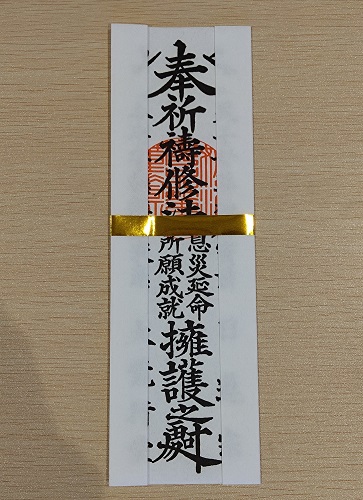 奉祈禱修法
息災延命
所願成就
擁護之